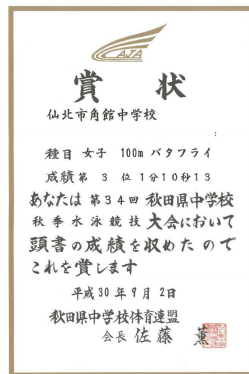 CAJA
賞 状
仙北市角館中学校
種目 女子 100m バタフライ
成績 第 3 位 1分10秒13
あなたは 第34回 秋田県中学校
秋季水泳競技 大会において
頭書の成績を収めたので
これを賞します
平成30年9月2日
秋田県中学校体育連盟
会長 佐藤 薫